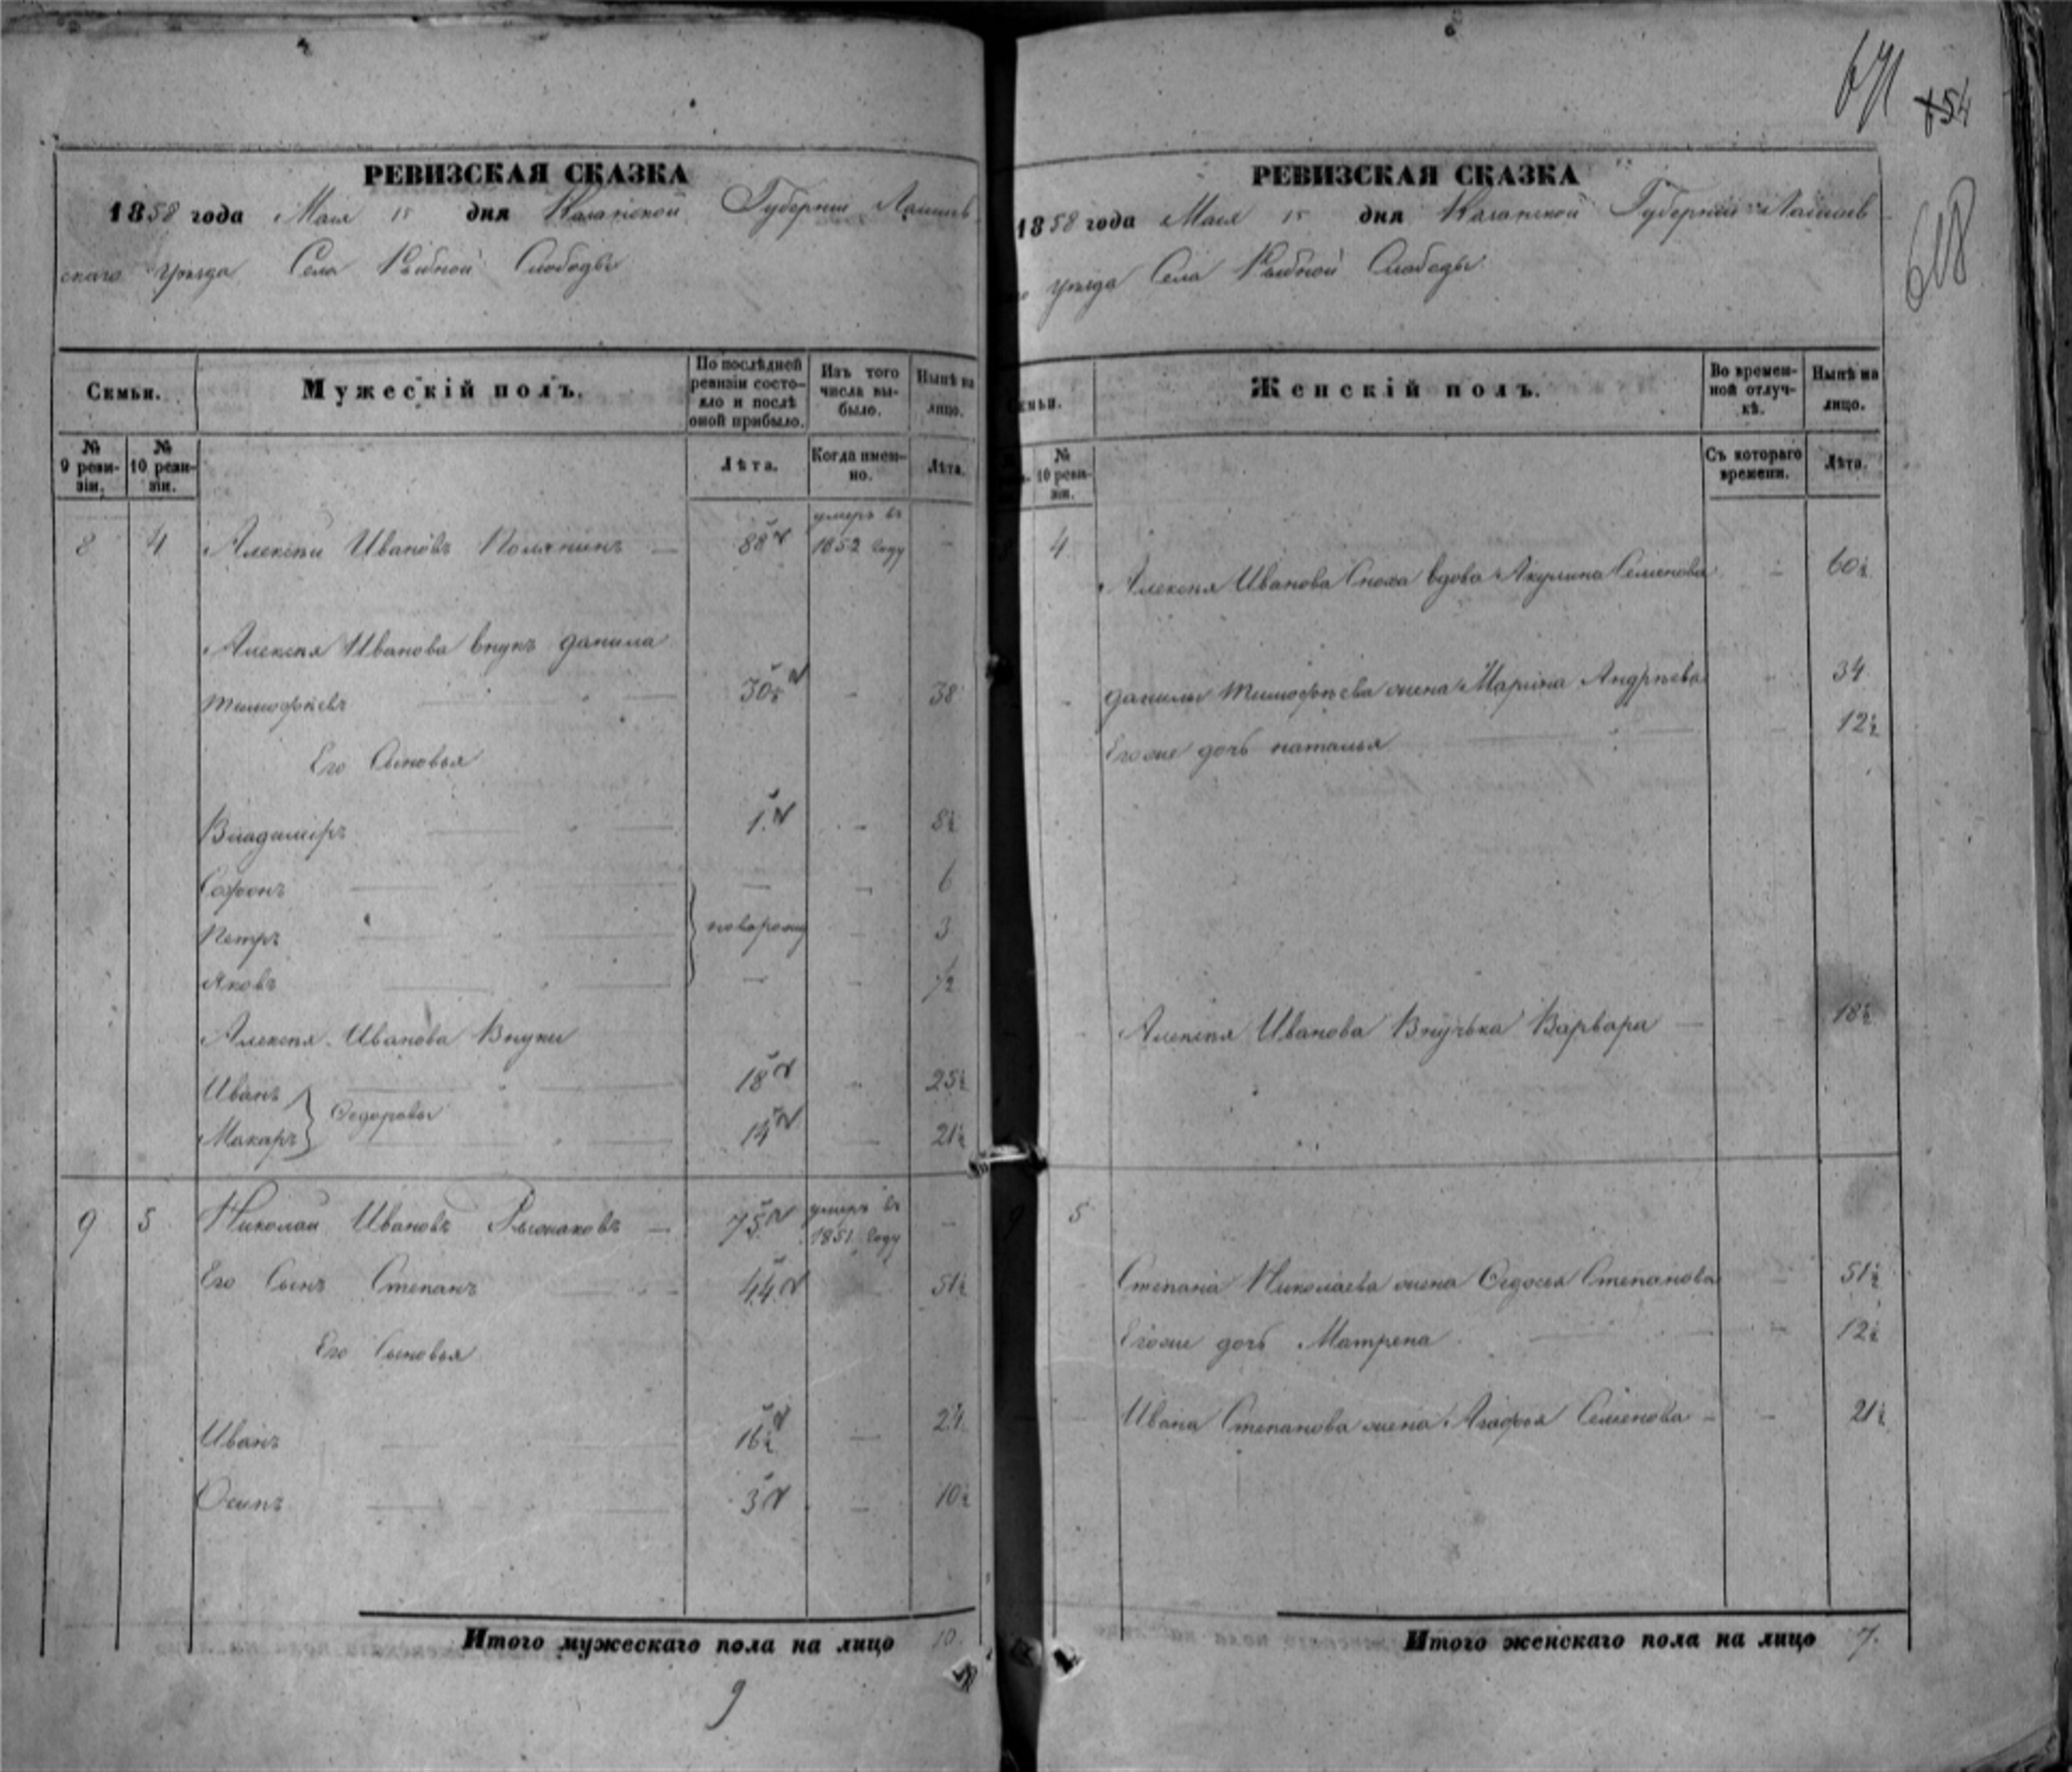 671
654
618
РЕВИЗСКАЯ СКАЗКА
1858 года Мая 15 дня Казанской Губерніи Лаишев
скаго уѣзда Села Рыбной Слободы
Семьи.
Мужескій полъ.
По послѣдней ревизіи состояло и послѣ оной прибыло.
Изъ того числа выбыло.
Нынѣ на лицо.
№ 9 ревизіи.
№ 10 ревизіи.
Лѣта.
Когда именно.
Лѣта.
8 4 Алексѣй Ивановъ Полянинъ — 88 умеръ въ 1852 году —
Алексѣя Иванова внукъ Данила
Тимофѣевъ — 30½ — 38
Его Сыновья
Владимiръ — 1 — 8½
Софронъ — — — 6
Петръ — новорож — 3
Яковъ — — — ½
Алексѣя Иванова Внуки
Иванъ — 18 — 25½
Федоровы
Макаръ — 14 — 21½
9 5 Николай Ивановъ Рыжаковъ — 75 умеръ въ 1851 году —
Его Сынъ Степанъ — 44 51½
Его Сыновья
Иванъ — 16½ — 24
Осипъ — 3 — 10½
Итого мужескаго пола на лицо 10.
9
РЕВИЗСКАЯ СКАЗКА
1858 года Мая 15 дня Казанской Губерніи Лаишев
о уѣзда Села Рыбной Слободы
мьи.
Женскій полъ.
Во временной отлучкѣ.
Нынѣ на лицо.
№ 10 ревизіи.
Съ котораго времени.
Лѣта.
4
Алексѣя Иванова Сноха вдова Акулина Семенова — 60½
Данилы Тимофѣева жена Марина Андрѣева — 34
Егоже дочь наталья — 12½
Алексѣя Иванова Внучька Варвара — 18½
9 5
Степана Николаева жена Федосья Степанова — 51½
Егоже дочь Матрена — 12½
Ивана Степанова жена Агафья Семенова — 21½
Итого женскаго пола на лицо 7.